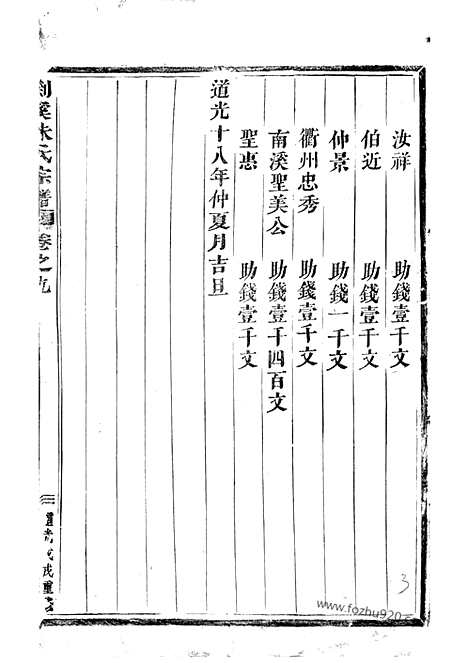 汝祥 助錢壹千文
伯近 助錢壹千文
仲景 助錢一千文
衢州忠秀 助錢壹千文
南溪聖美公 助錢壹千四百文
聖惠 助錢壹千文
道光十八年仲夏月吉旦
剡溪朱氏宗譜 卷之九
三
3
www.fozhu920.com